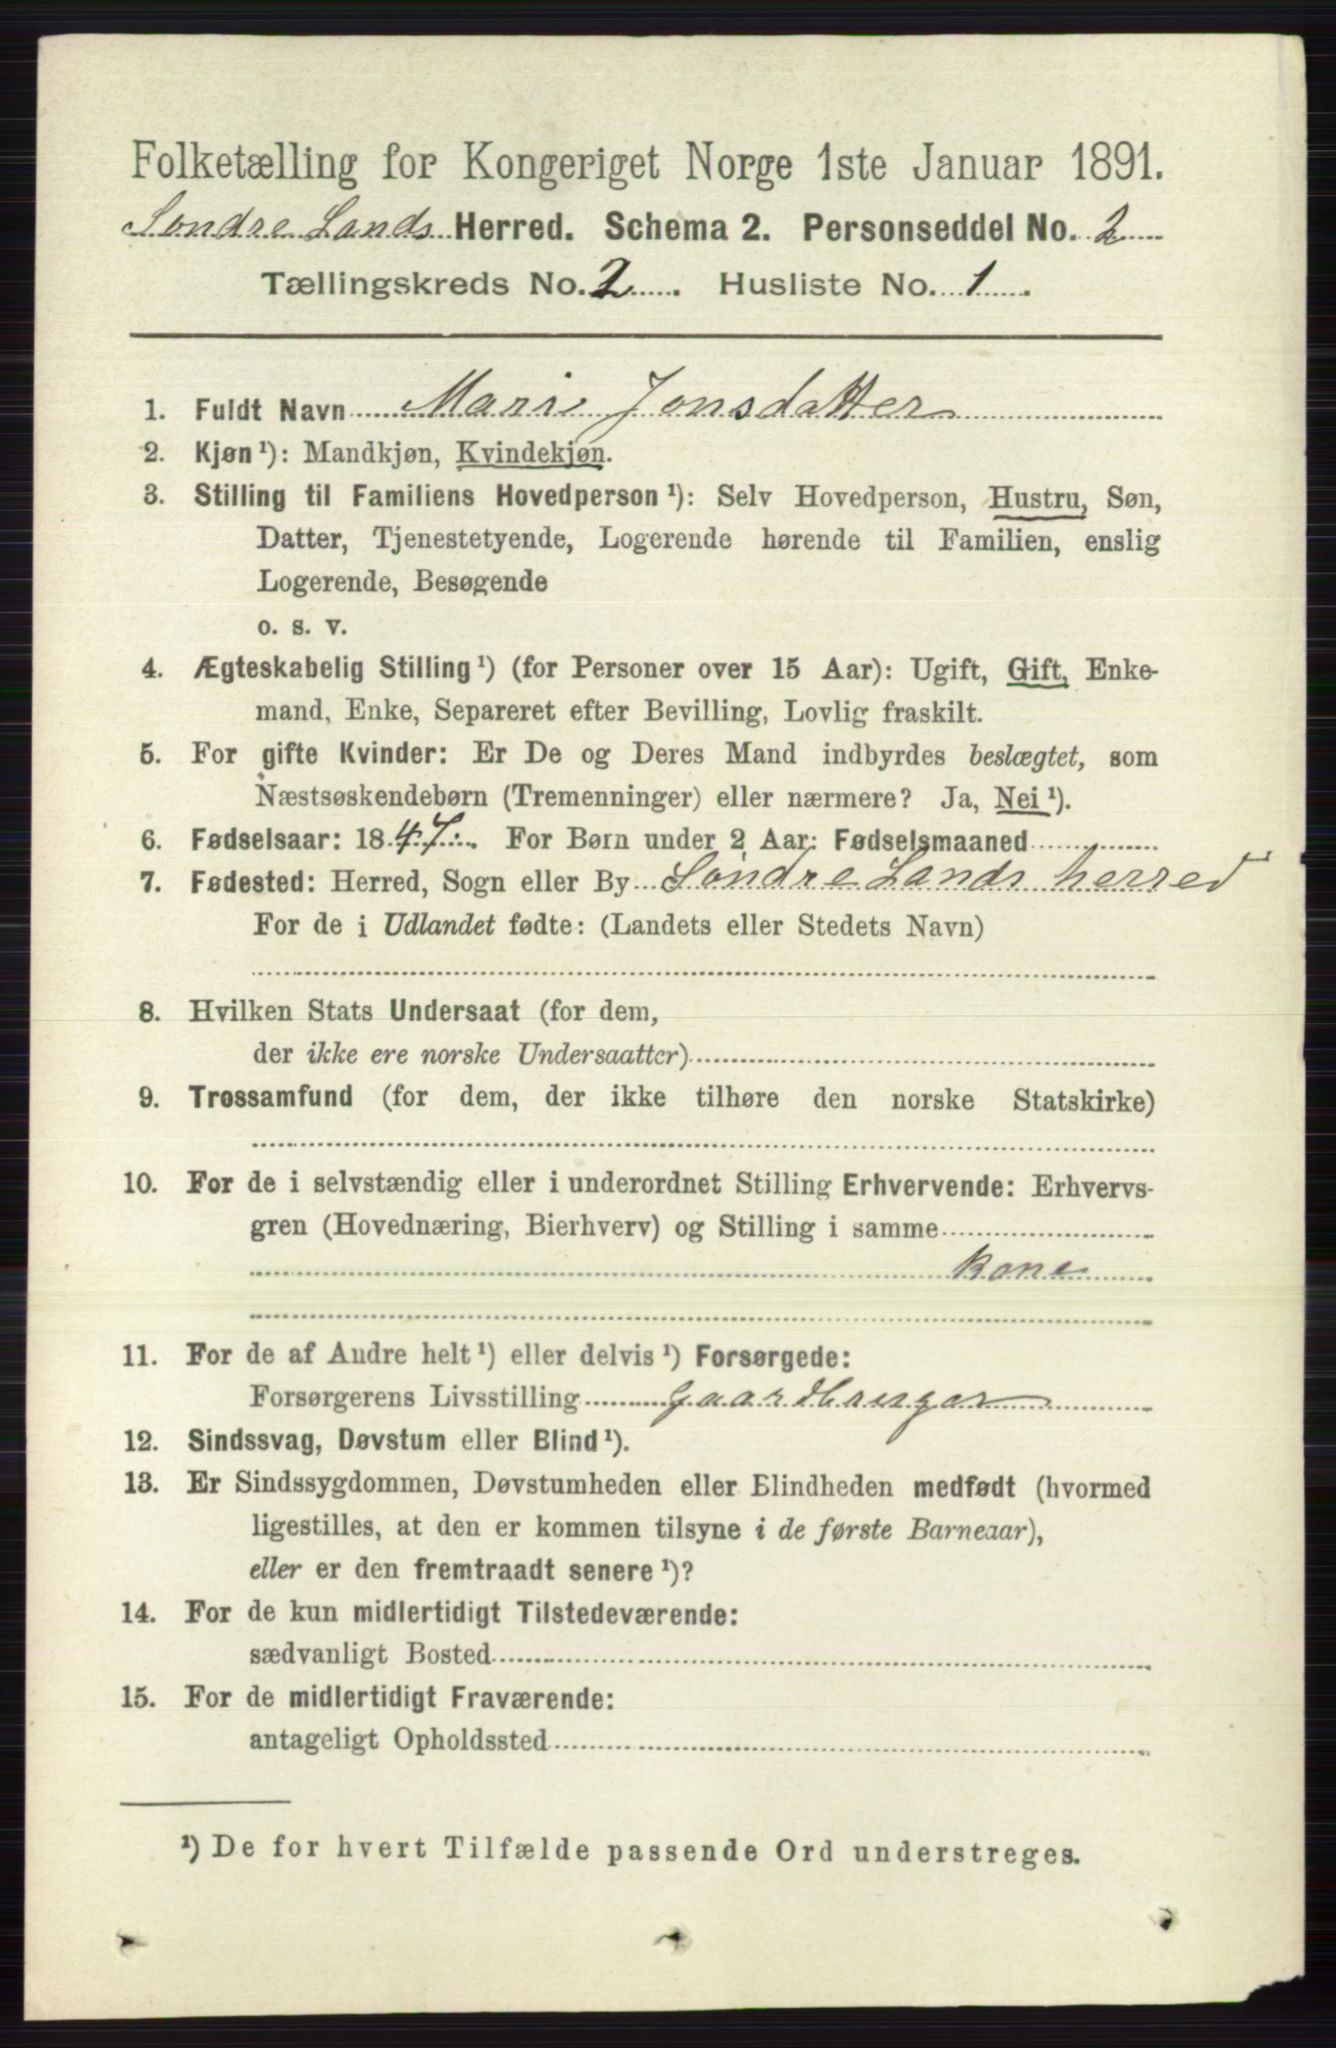 Folketælling for Kongeriget Norge 1ste Januar 1891.
Søndre Lands Herred. Schema 2. Personseddel No. 2
Tællingskreds No. 2. Husliste No. 1.
1. Fuldt Navn Marie Jonsdatter
2. Kjøn¹): Mandkjøn, Kvindekjøn.
3. Stilling til Familiens Hovedperson¹): Selv Hovedperson, Hustru, Søn,
Datter, Tjenestetyende, Logerende hørende til Familien, enslig
Logerende, Besøgende
o. s. v.
4. Ægteskabelig Stilling¹) (for Personer over 15 Aar): Ugift, Gift, Enke-
mand, Enke, Separeret efter Bevilling, Lovlig fraskilt.
5. For gifte Kvinder: Er De og Deres Mand indbyrdes beslægtet, som
Næstsøskendebørn (Tremenninger) eller nærmere? Ja, Nei¹).
6. Fødselsaar: 1847. For Børn under 2 Aar: Fødselsmaaned
7. Fødested: Herred, Sogn eller By Søndre Lands herred
For de i Udlandet fødte: (Landets eller Stedets Navn)
8. Hvilken Stats Undersaat (for dem,
der ikke ere norske Undersaatter)
9. Trossamfund (for dem, der ikke tilhøre den norske Statskirke)
10. For de i selvstændig eller i underordnet Stilling Erhvervende: Erhvervs-
gren (Hovednæring, Bierhverv) og Stilling i samme
kone
11. For de af Andre helt¹) eller delvis¹) Forsørgede:
Forsørgerens Livsstilling Gaardbruger
12. Sindssvag, Døvstum eller Blind¹).
13. Er Sindssygdommen, Døvstumheden eller Blindheden medfødt (hvormed
ligestilles, at den er kommen tilsyne i de første Barneaar),
eller er den fremtraadt senere¹)?
14. For de kun midlertidigt Tilstedeværende:
sædvanligt Bosted
15. For de midlertidigt Fraværende:
antageligt Opholdssted
¹) De for hvert Tilfælde passende Ord understreges.